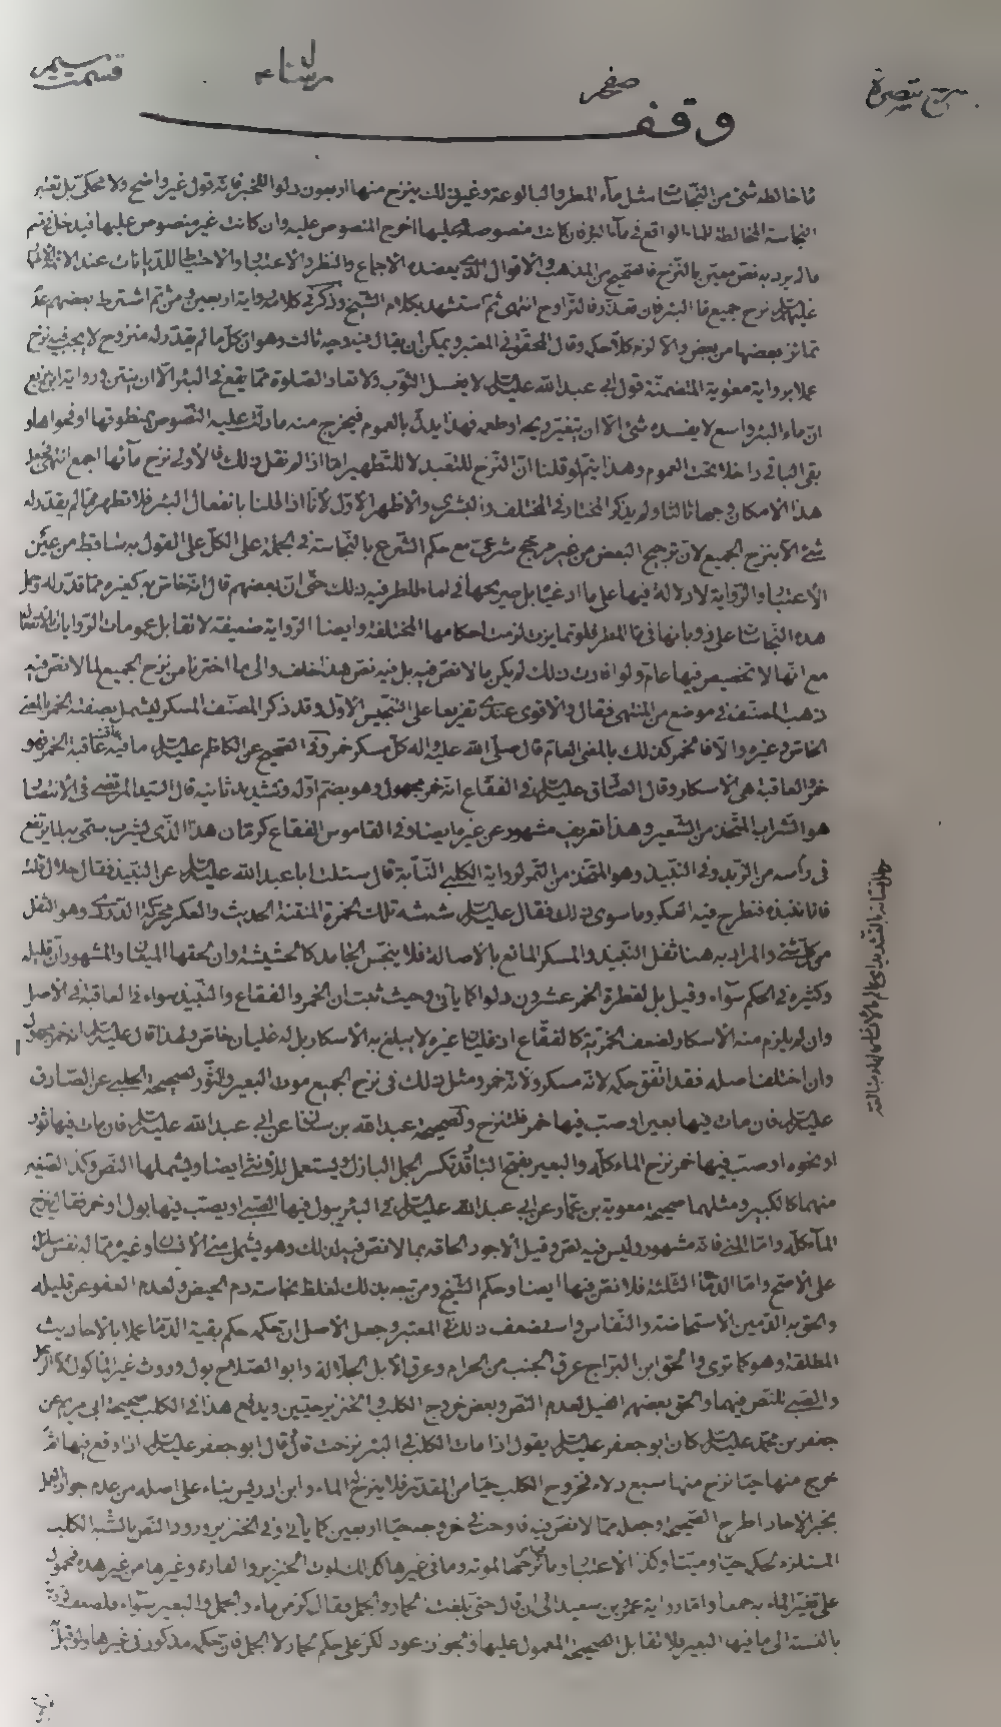 وقف
ما خالطه شئ من النجاسات مثل ماء المطر والبالوعة وغير ذلك ينزح منها اربعون دلوا للخبر فانه قول غير واضح ولا محكى بل تعتبر
النجاسة المخالطة للماء الواقع في ماء البئر فان كانت منصوصة عليها اخرج المنصوص عليه وان كانت غير منصوص عليها فيدخل في قسم
ما لم يرد به نص معين بالنزح فالصحيح من المذهب والاقوال الذى يعضده الاجماع والنظر والاعتبار والاحتياط للديانات عند الائمة
عليهم السلام نزح جميع ماء البئر فان تعذر فالتراوح انتهى ثم استشهد بكلام الشيخ وذكر في كلامه رواية اربعين ومن ثم اشترط بعضهم
تمايز بعضها من بعض والا لزم كلا حكمه وقال المحقق في المعتبر ويمكن ان يقال فيه وجه ثالث وهو ان كل ما لم يقدر له منزوح لا يجب فيه نزح
عملا برواية معوية المتضمنة قول ابى عبد الله عليه السلام لا يغسل الثوب ولا تعاد الصلوة مما يقع في البئر الا ان ينتن ورواية ابن بزيع
ان ماء البئر واسع لا يفسده شئ الا ان يتغير ريحه او طعمه فهذا يدل بالعموم فيخرج منه ما دلت عليه النصوص بمنطوقها او فحواها و
بقى الباقى داخلا تحت العموم وهذا يتم لو قلنا ان النزح للتعبد لا للتطهير اما اذا لم نقل ذلك فالاولى نزح مائها اجمع انتهى
هذا الامكان وجها ثالثا ولم يذكر المختار في المختلف والبشرى والاظهر الاول لانا اذا قلنا بانفعال البئر فلا تطهر مما لم يقدر له
شئ الا بنزح الجميع لان ترجيح البعض من غير مرجح شرعى مع حكم الشرع بالنجاسة في الجملة على الكل على القول به ساقط من عين
الاعتبار والرواية لا دلالة فيها على ما ادعيا بل صريحها في ماء المطر فيه ذلك حتى ان بعضهم قال انه خاص به كغيره مما قدر له وكل
هذه النجاسات على ذوبانها في ماء المطر فلو تمايزت لزمت احكامها المختلفة وايضا الرواية ضعيفة لا تقابل عمومات الروايات
مع انها لا تخصيص فيها عام ولو افادت ذلك لم يكن ما لا نص فيه بل فيه نص هذا خلف والى ما اخترنا من نزح الجميع لما لا نص فيه
ذهب المصنف في موضع من المنتهى فقال والاقوى عندى تفريعا على التنجيس الاول وقد ذكر المصنف المسكر ليشمل بصفته الخمر بالمعنى
الخاص وغيره والا فالخمر كذلك بالمعنى العام قال صلى الله عليه واله كل مسكر خمر وفى الصحيح عن الكاظم عليه السلام ما فيه عاقبة الخمر فهو
خمر والعاقبة هى الاسكار وقال الصادق عليه السلام في الفقاع انه خمر مجهول وهو بضم اوله وتشديد ثانيه قال السيد المرتضى في الانتصار
هو الشراب المتخذ من الشعير وهذا تعريف مشهور عن غيره ايضا وفي القاموس الفقاع كرمان هذا الذى يشرب سمى به لما يرتفع
في رأسه من الزبد وفى النبيذ وهو المتخذ من التمر لرواية الكلبى النسابة قال سئلت ابا عبد الله عليه السلام عن النبيذ فقال حلال قلت
فانا ننبذه فنطرح فيه العكر وما سوى ذلك فقال عليه السلام شه شه تلك الخمرة المنتنة الحديث والعكر محركة الدردى وهو الثفل
من كل شئ والمراد به هنا ثفل النبيذ والمسكر المائع بالاصالة فلا ينجس الجامد كالحشيشة وان لحقها الميعان والمشهور ان قليله
وكثيره في الحكم سواء وقيل بل لقطرة الخمر عشرون دلوا كما يأتى وحيث ثبت ان الخمر والفقاع والنبيذ سواء في العاقبة في الاصل
وان لم يلزم منه الاسكار لضعف الخمرية كالفقاع اذ غليان غيره لا يبلغ به الاسكار بل له غليان خاص ولهذا قال عليه السلام انه خمر مجهول
وان اختلف اصله فقد اتفق حكمه لانه مسكر ولانه خمر ومثل ذلك في نزح الجميع موت البعير والثور لصحيحة الحلبى عن الصادق
عليه السلام فان مات فيها بعير او صب فيها خمر فلتنزح ولصحيحة عبد الله بن سنان عن ابى عبد الله عليه السلام فان مات فيها ثور
او نحوه او صب فيها خمر نزح الماء كله والبعير بفتح الباء وقد تكسر الجمل البازل ويستعمل للانثى ايضا ويشملها النص وكذا الصغير
منهما كالكبير ومثلهما صحيحة معوية بن عمار عن ابى عبد الله عليه السلام في البئر يبول فيها الصبى او يصب فيها بول او خمر فقال ينزح
الماء كله واما المنى فانه مشهور وليس فيه نص وقيل الاجود الحاقه بما لا نص فيه لذلك وهو يشمل منى الانسان وغيره مما له نفس سائلة
على الاصح واما الدماء الثلثة فلا نص فيها ايضا وحكم الشيخ ومن تبعه بذلك لغلظ نجاسة دم الحيض ولعدم العفو عن قليله
والحق به الدمين الاستحاضة والنفاس واستضعف ذلك في المعتبر وجعل الاصل ان حكمه حكم بقية الدماء عملا بالاحاديث
المطلقة وهو كما ترى والحق ابن البراج عرق الجنب من الحرام وعرق الابل الجلالة وابو الصلاح بول وروث غير المأكول الا
والصبى للنص فيهما والحق بعضهم الفيل لعدم النص وبعض خروج الكلب والخنزير حيين ويدفع هذا في الكلب صحيحة ابى مريم عن
جعفر بن محمد عليه السلام كان ابو جعفر عليه السلام يقول اذا مات الكلب في البئر نزحت قال وقال ابو جعفر عليه السلام اذا وقع فيها ثم
خرج منها حيا نزح منها سبع دلاء فخروج الكلب حيا من المقدر فلا ينزح له الماء وابن ادريس بناء على اصله من عدم جواز العمل
بخبر الاحاد اطرح الصحيح وجعله مما لا نص فيه فاوجب في خروجه حيا اربعين كما يأتى وفى الخنزير ورود النص بالشبه الكلب
المستلزم لحكمه حيا وميتا وكذا الاعتبار
على تغير الماء به جمعا واما رواية عمرو بن سعيد الى ان قال حتى بلغت الحمار والجمل فقال كر من ماء والجمل والبعير سواء فلضعف
بالنسبة الى ما فيها البعير فلا تقابل الصحيحة المعمول عليها ويجوز عود الكر على حكم الحمار لا الجمل فان حكمه مذكور في غيرها